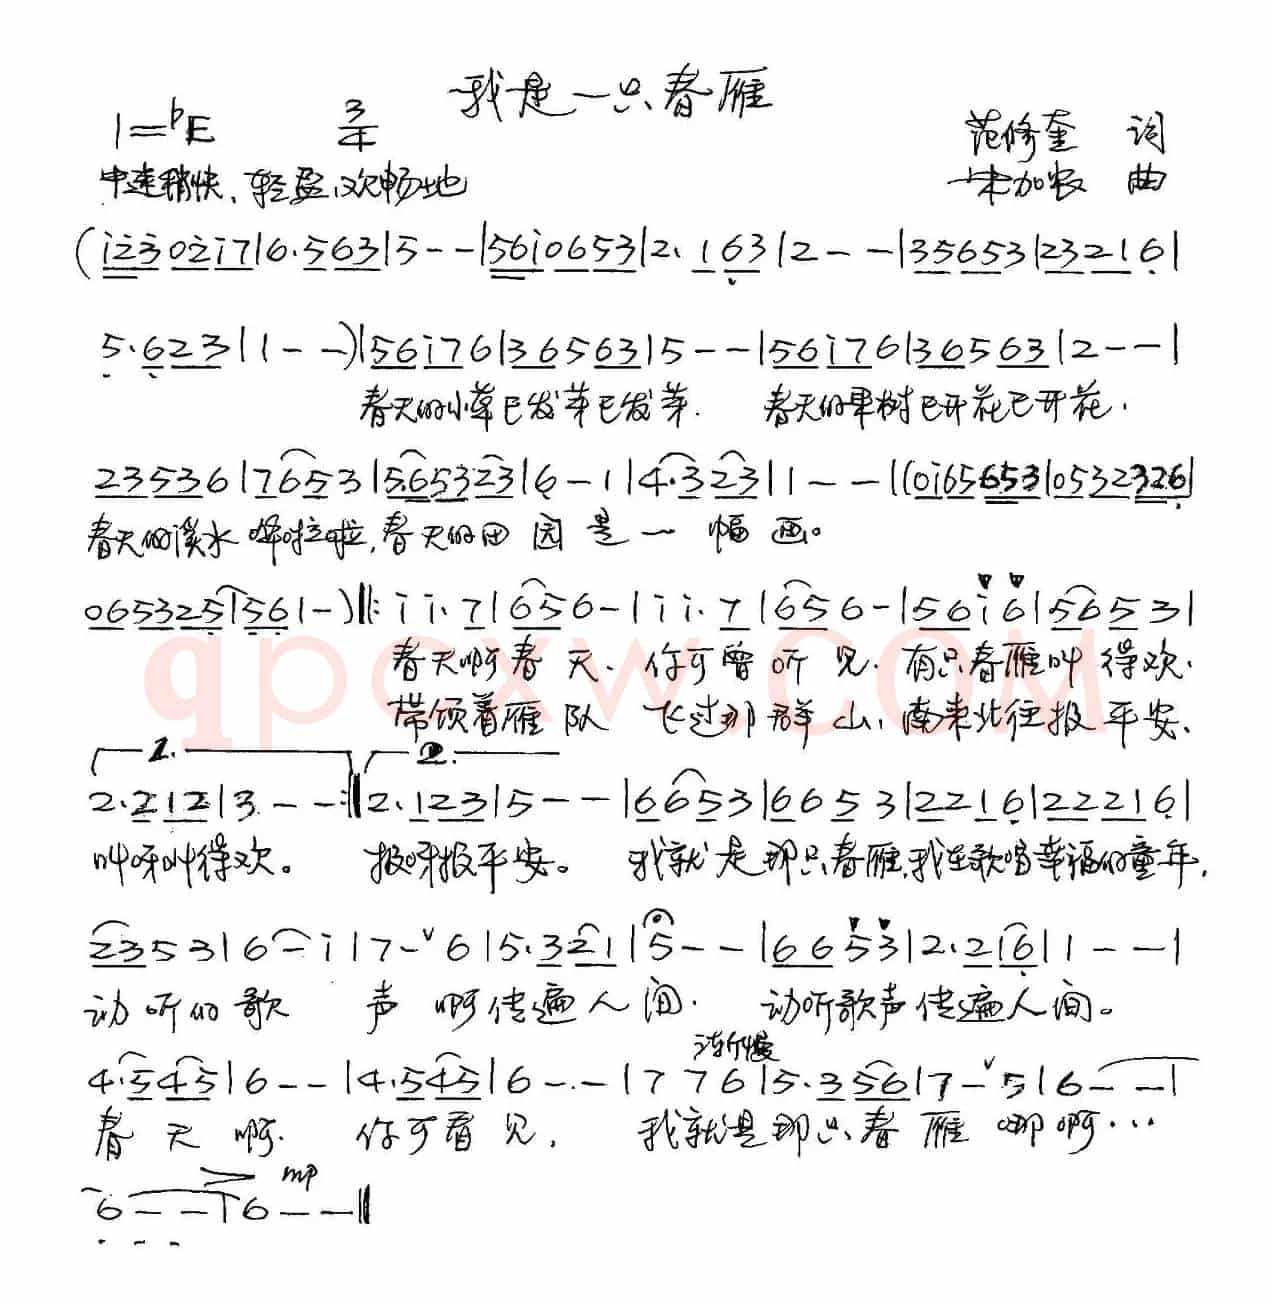 我是一只春雁
1=♭E 3/4 范修奎 词
中速稍快、轻盈、欢畅地 加农 曲
(i̇2̇3̇ 02̇i̇7|6·563|5--|56i̇0653|2·163|2--|35653|23216|
5·623|1--)|56i̇76|36563|5--|56i̇76|36563|2--|
春天的小草已发芽已发芽. 春天的果树已开花已开花.
23536|7653|565323|6-1|4·323|1--|(0i̇65653|0532326|
春天的溪水哗啦啦,春天的田园是一幅画。
065325|561-)‖:i̇i̇·7|656-|i̇i̇·7|656-|56i̇6|5653|
春天啊春天. 你可曾听见. 有只春雁叫得欢.
带领着雁队 飞过那群山, 南来北往报平安.
1. 2.
2·212|3--:‖2·123|5--|6653|6653|2216|22216|
叫呀叫得欢。 报呀报平安。 我就是那只春雁,我在歌唱幸福的童年,
23531|6-i̇|7-ᵛ6|5·321|5--|6653|2·216|1--|
动听的歌声啊传遍人间. 动听歌声传遍人间。
渐慢
4·545|6--|4·545|6--|776|5·356|7-ᵛ5|6--|
春天啊. 你可看见, 我就是那只春雁哪啊···
mp
6--|6--‖
qpcxw.COM